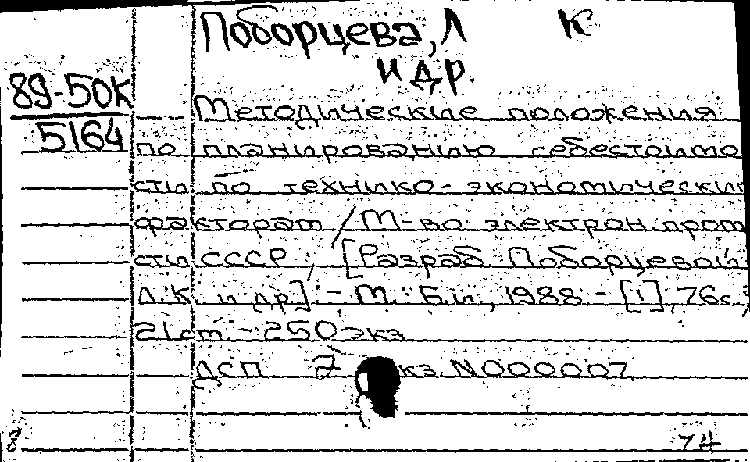 Поборцева, Л К
и др.
89-50К
5164
Методические положения
по планированию себестоимо
сти по технико-экономическим
факторам / М-во электрон. пром
сти СССР; [Разраб. Поборцевой
Л.К. и др]. - М.: Б.и., 1988 - [1], 76с.,
21см. - 250экз
ДСП 2 экз N000007
8
74